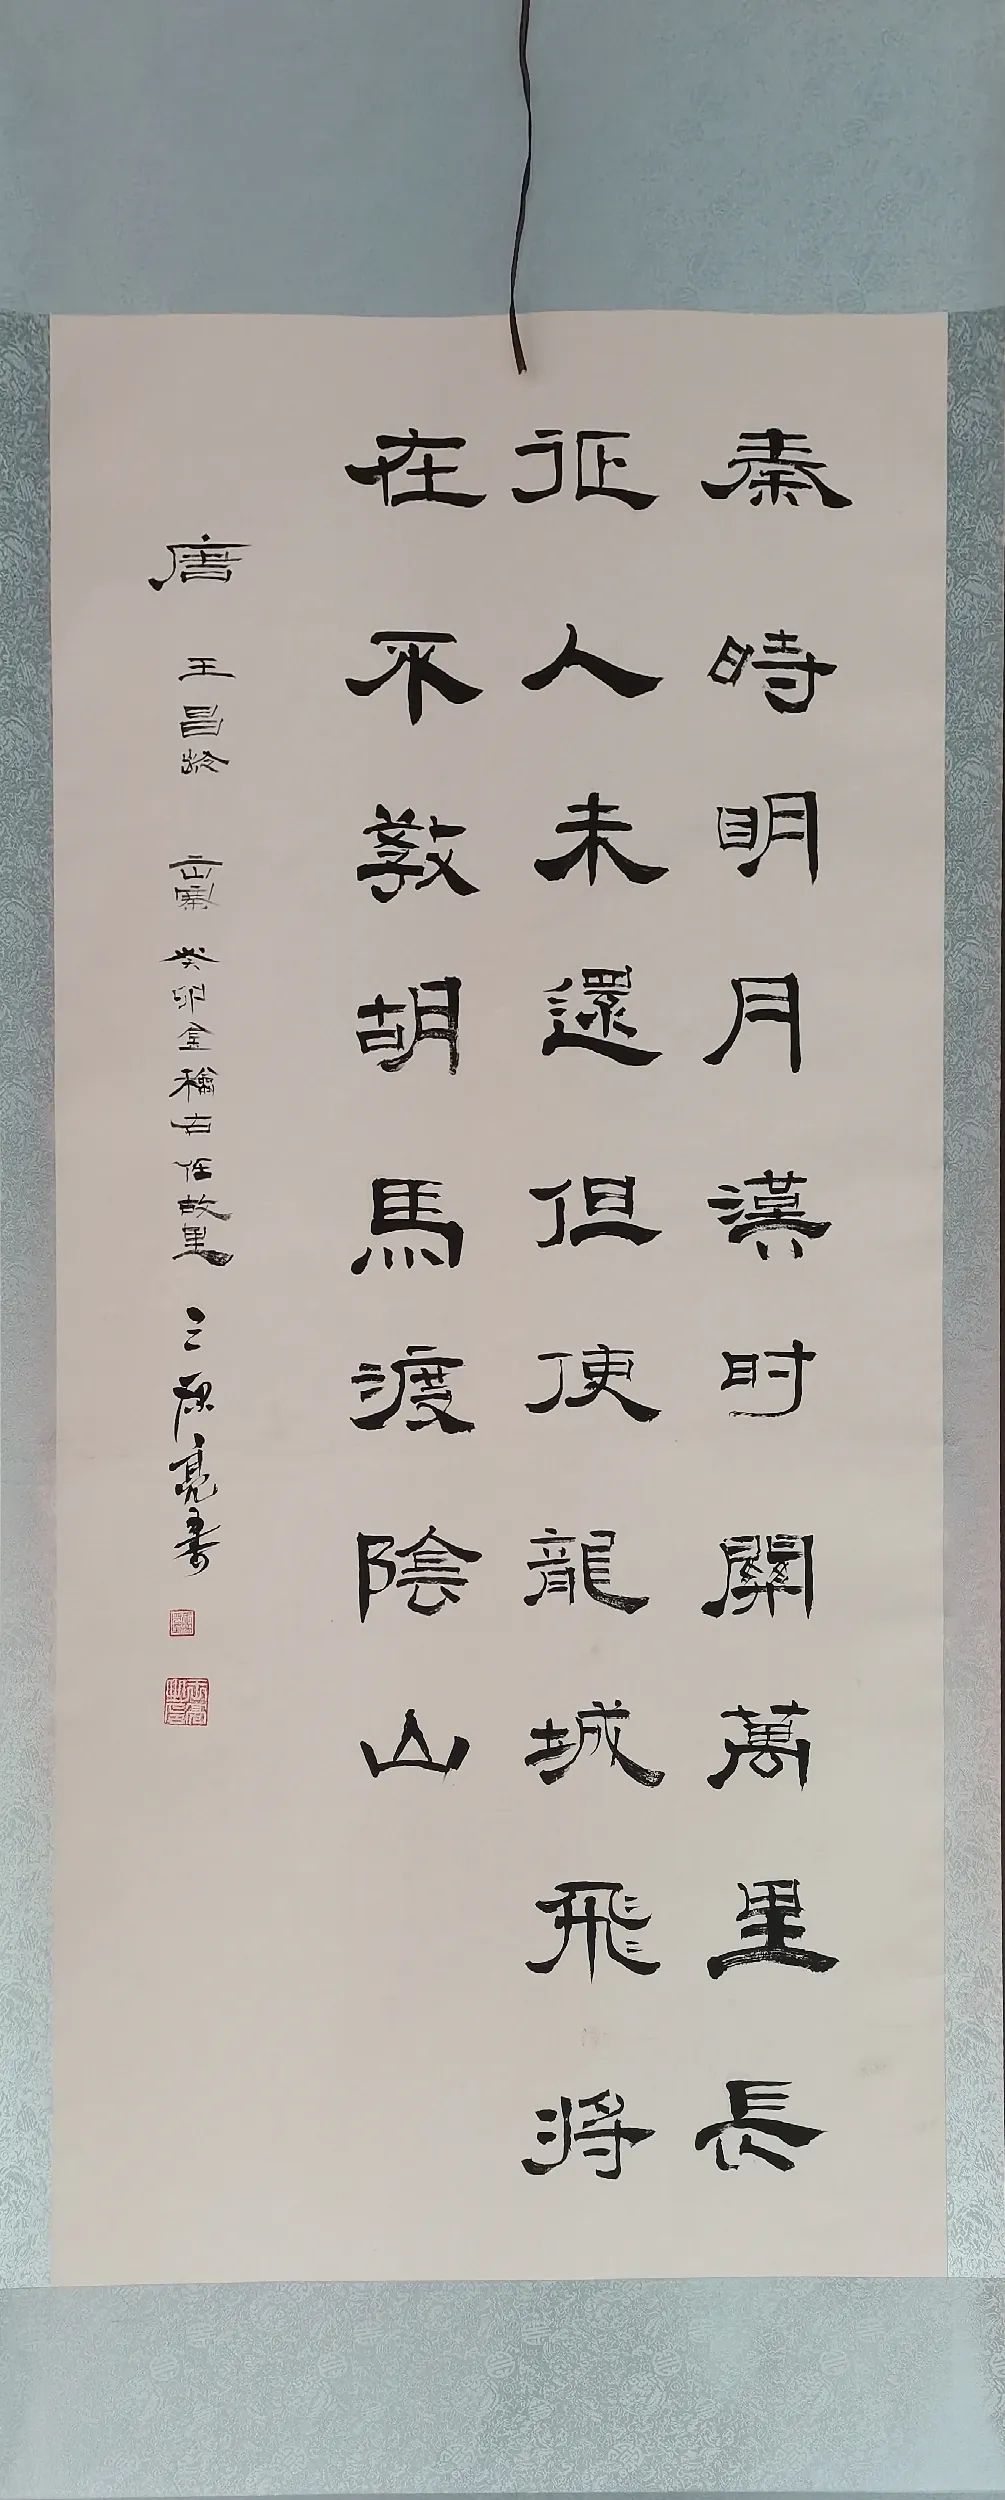 秦時明月漢时關萬里長
征人未還但使龍城飛將
在不敎胡馬渡陰山
唐 王昌龄 出塞 癸卯金穐古任故里 三 亮書